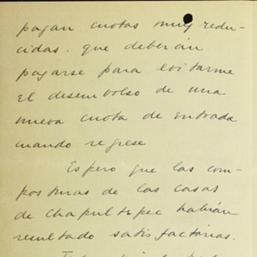 pagan cuotas muy redu-
cidas. que deberán
pagarse para evitarme
el desembolso de una
nueva cuota de entrada
cuando regrese
Espero que las com-
posturas de las casas
de Chapultepec habrán
resultado satisfactorias.